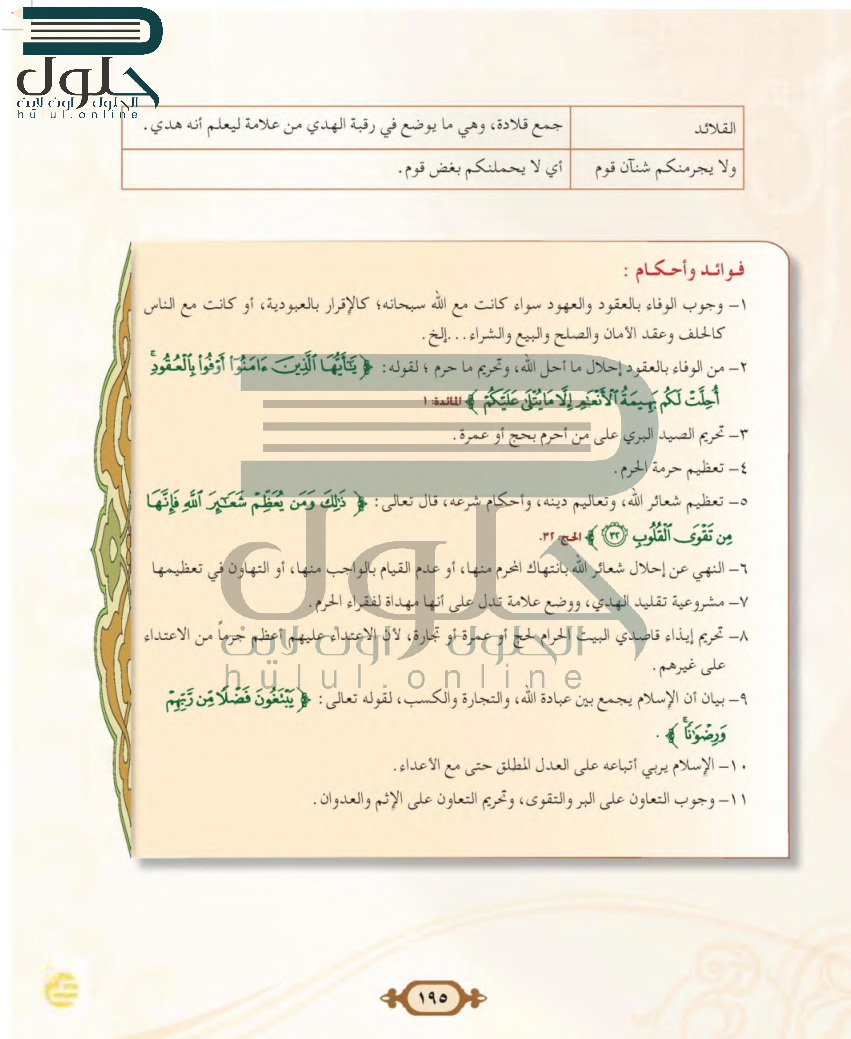 حلول
الحلول اون لاين
hulul.online
القلائد
جمع قلادة، وهي ما يوضع في رقبة الهدي من علامة ليعلم أنه هدي.
ولا يجرمنكم شنآن قوم
أي لا يحملنكم بغض قوم.
فوائد وأحكام :
١– وجوب الوفاء بالعقود والعهود سواء كانت مع الله سبحانه؛ كالإقرار بالعبودية، أو كانت مع الناس
كالحلف وعقد الأمان والصلح والبيع والشراء...إلخ.
٢– من الوفاء بالعقود إحلال ما أحل الله، وتحريم ما حرم ؛ لقوله: ﴿ يَٰٓأَيُّهَا ٱلَّذِينَ ءَامَنُوٓاْ أَوۡفُواْ بِٱلۡعُقُودِۚ
أُحِلَّتۡ لَكُم بَهِيمَةُ ٱلۡأَنۡعَٰمِ إِلَّا مَا يُتۡلَىٰ عَلَيۡكُمۡ ﴾ المائدة: ١
٣– تحريم الصيد البري على من أحرم بحج أو عمرة.
٤– تعظيم حرمة الحرم.
٥– تعظيم شعائر الله، وتعاليم دينه، وأحكام شرعه، قال تعالى: ﴿ ذَٰلِكَ وَمَن يُعَظِّمۡ شَعَٰٓئِرَ ٱللَّهِ فَإِنَّهَا
مِن تَقۡوَى ٱلۡقُلُوبِ ٣٢ ﴾ الحج: ٣٢.
٦– النهي عن إحلال شعائر الله بانتهاك المحرم منها، أو عدم القيام بالواجب منها، أو التهاون في تعظيمها
٧– مشروعية تقليد الهدي، ووضع علامة تدل على أنها مهداة لفقراء الحرم.
٨– تحريم إيذاء قاصدي البيت الحرام لحج أو عمرة أو تجارة، لأن الاعتداء عليهم أعظم جرماً من الاعتداء
على غيرهم.
٩– بيان أن الإسلام يجمع بين عبادة الله، والتجارة والكسب، لقوله تعالى: ﴿ يَبۡتَغُونَ فَضۡلٗا مِّن رَّبِّهِمۡ
وَرِضۡوَٰنٗاۚ ﴾ .
١٠– الإسلام يربي أتباعه على العدل المطلق حتى مع الأعداء.
١١– وجوب التعاون على البر والتقوى، وتحريم التعاون على الإثم والعدوان.
حلول
الحلول اون لاين
hulul.online
١٩٥